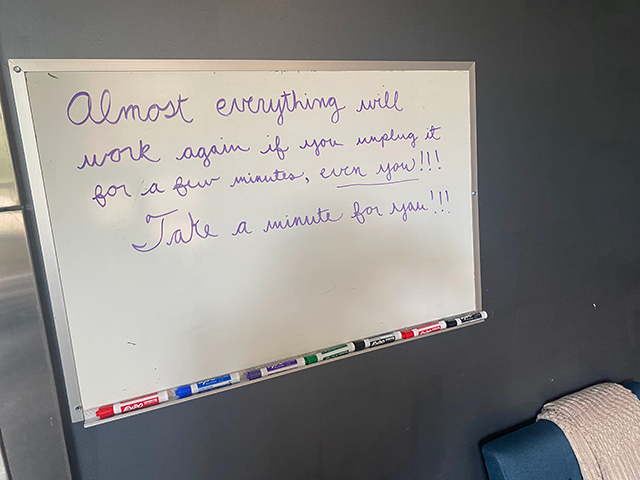 Almost everything will
work again if you unplug it
for a few minutes, even you!!!
Take a minute for you!!!
EXPO